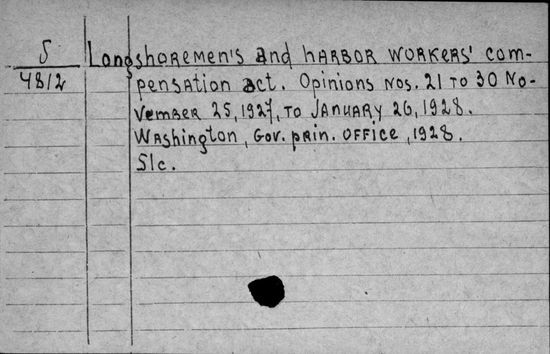 5 Longshoremen's and harbor workers' com-
4812 pensation act. Opinions Nos. 21 to 30 No-
vember 25, 1927, to January 26, 1928.
Washington, Gov. prin. office, 1928.
Slc.